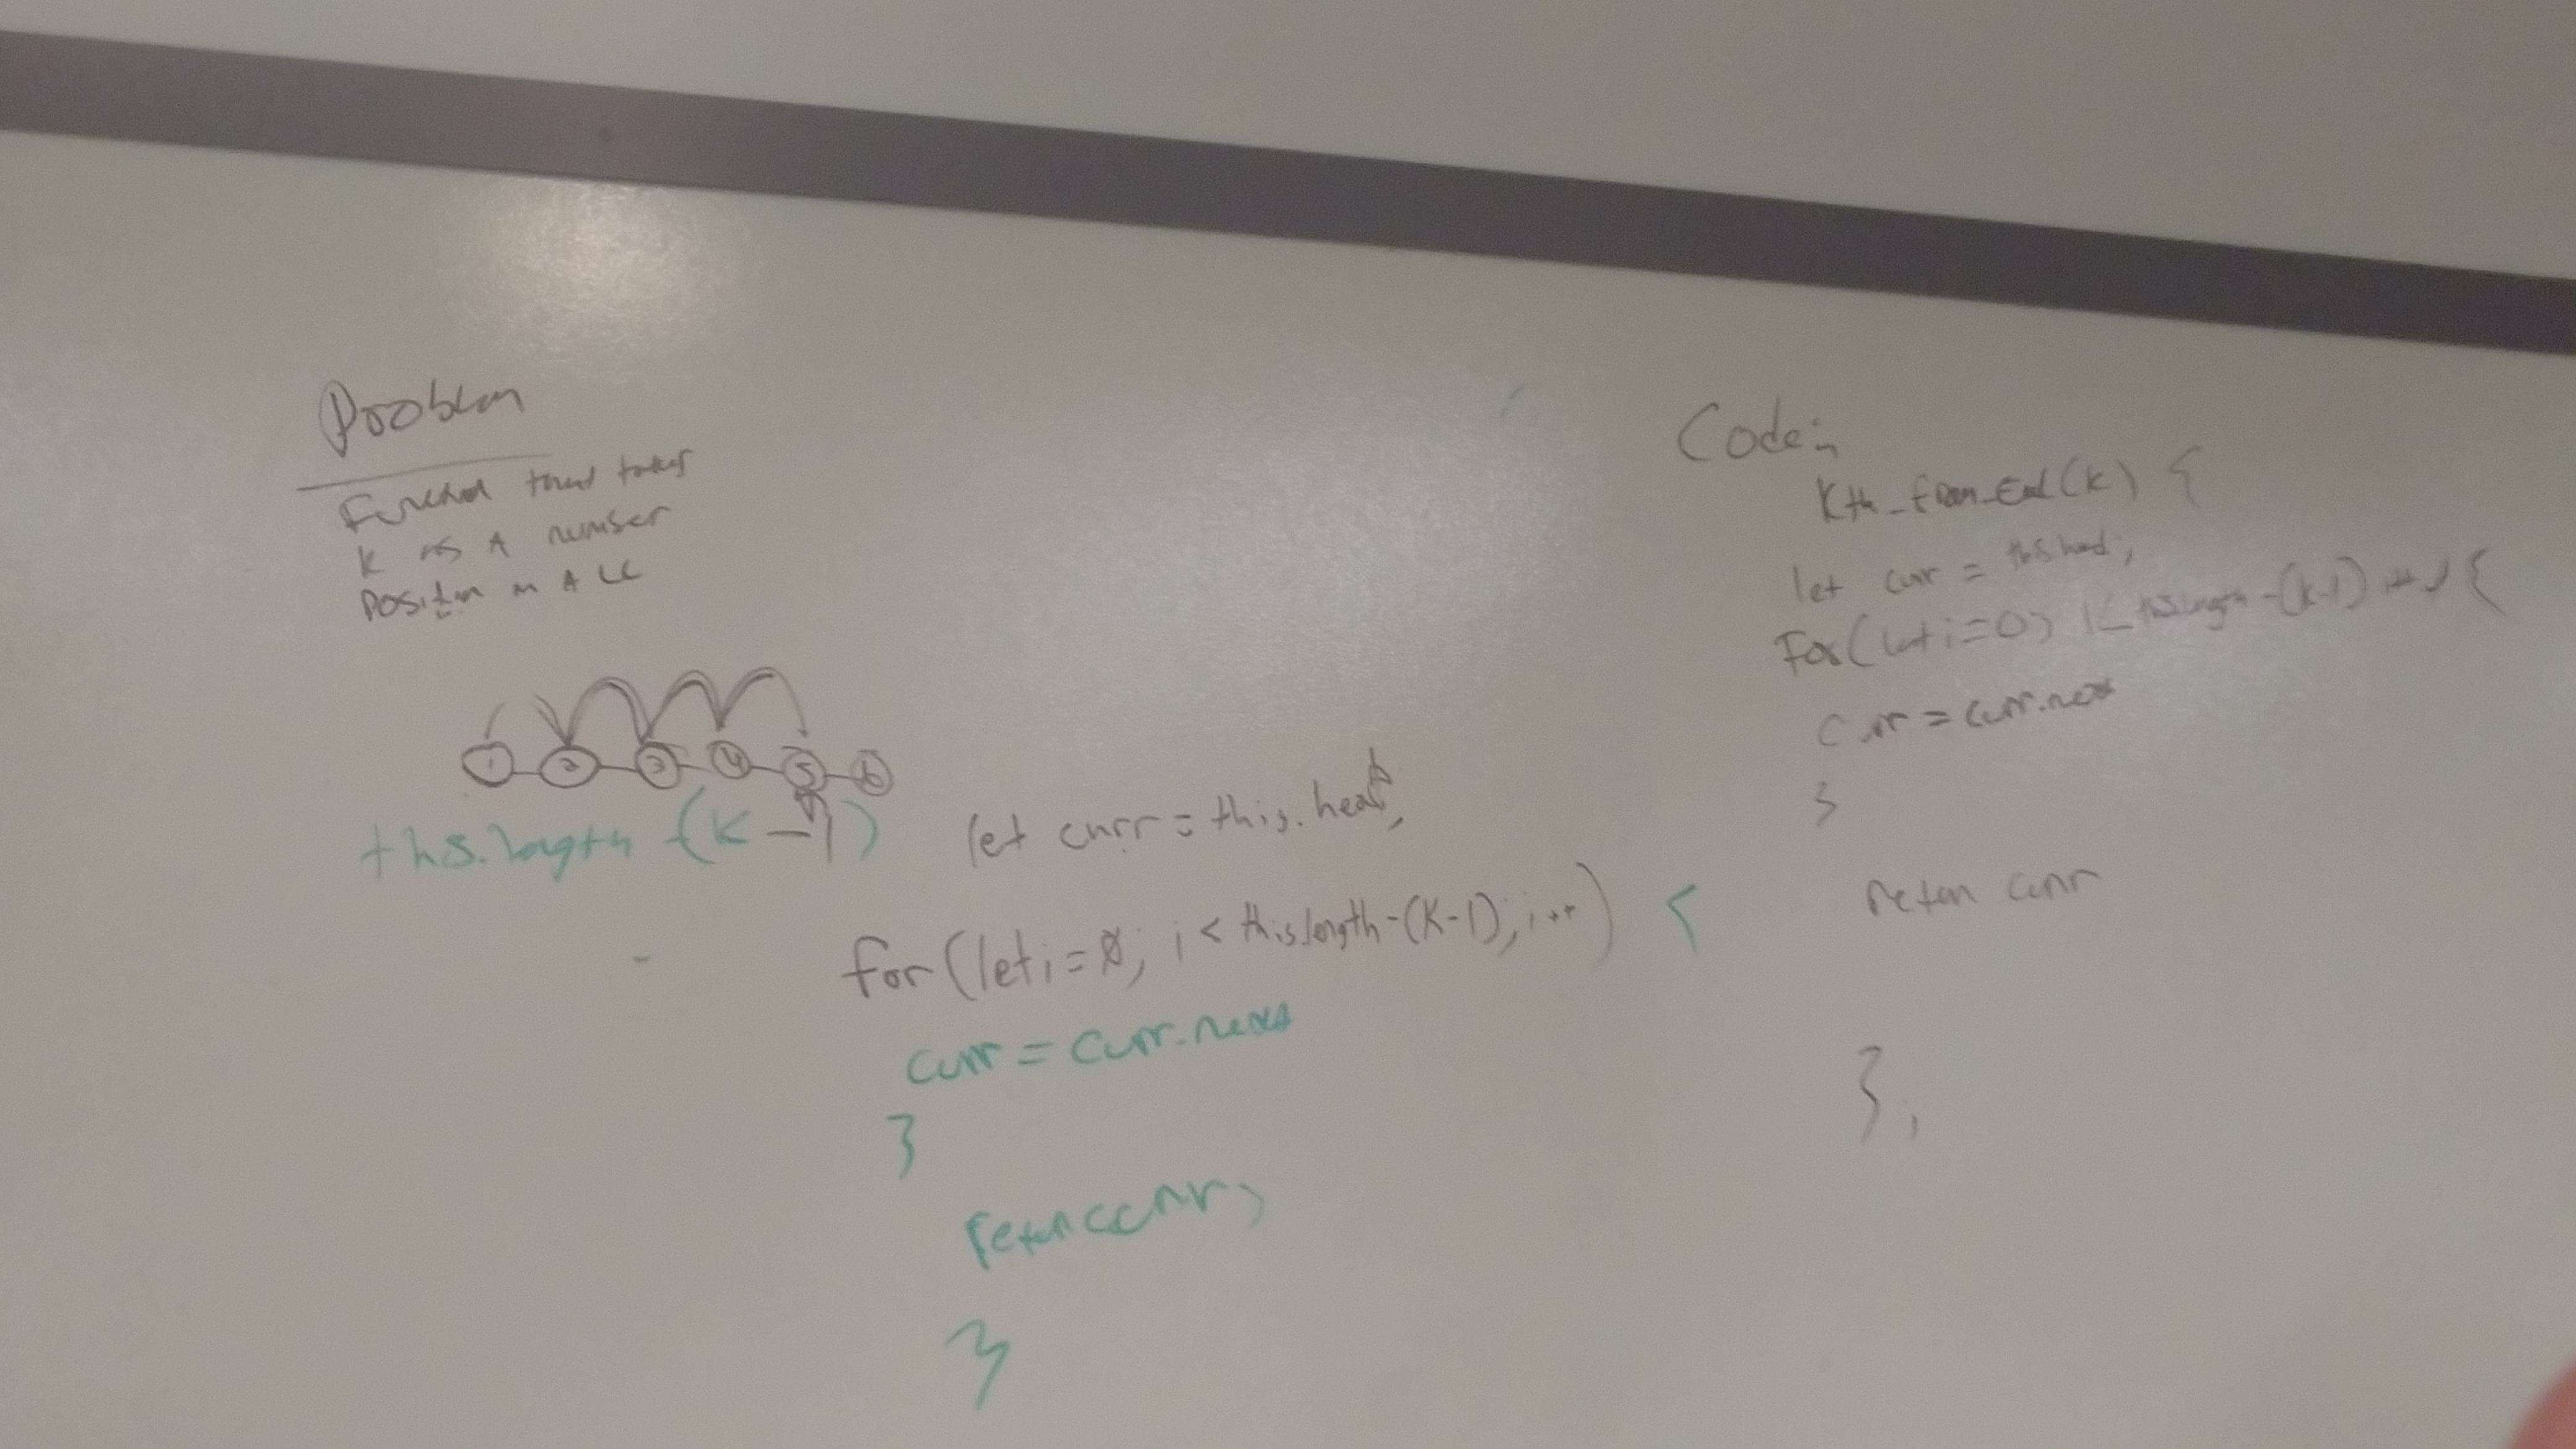 Problem
Function that takes
k as A number
position in A LL
1 2 3 4 5 6
this.length -(k-1)
let curr = this.head;
for(let i=0; i < this.length-(k-1); i++) {
curr = curr.next
}
return curr;
}
Code:
Kth_from_End(k) {
let curr = this.head;
For(let i=0; i< this.length-(k-1) i++) {
curr = curr.next
}
return curr
};